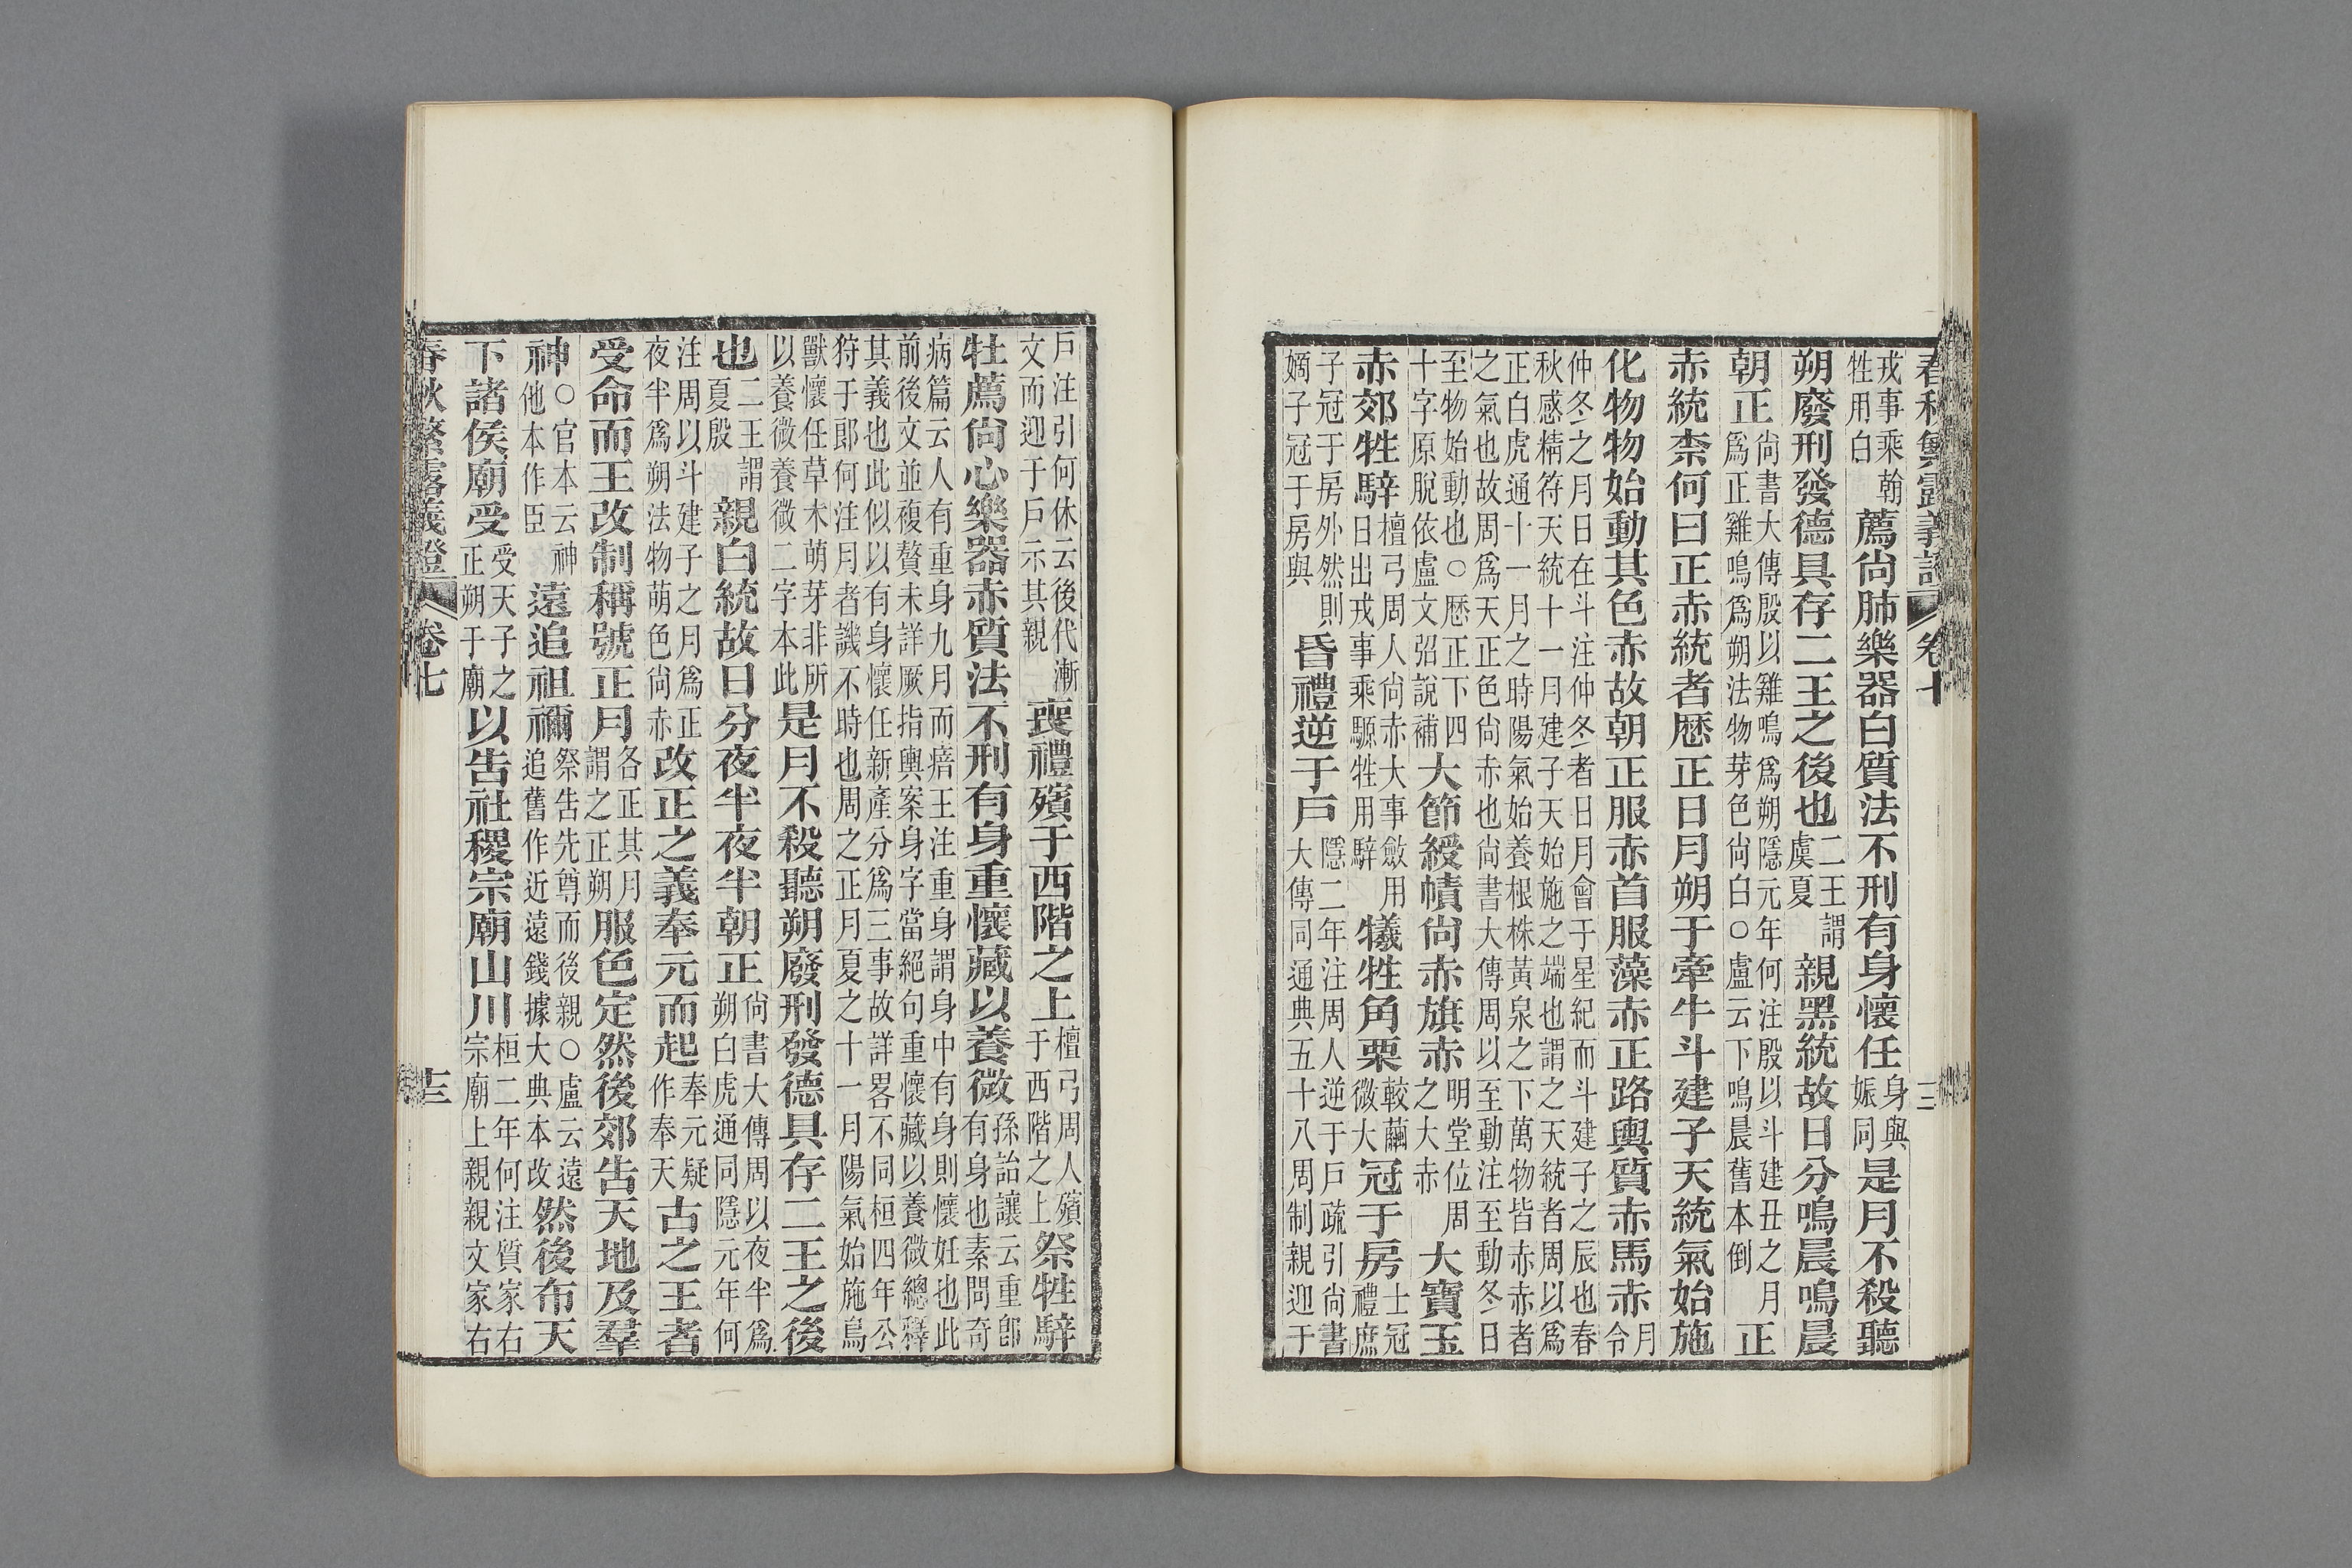 春秋繁露義證 卷七
戎事乘翰牲用白薦尚肺樂器白質法不刑有身懷任身與娠同是月不殺聽
朔廢刑發德具存二王之後也二王謂虞夏親黑統故日分鳴晨鳴晨
朝正尚書大傳殷以雞鳴爲朔隱元年何注殷以斗建丑之月爲正雞鳴爲朔法物芽色尚白○盧云下鳴晨舊本倒正
赤統柰何曰正赤統者歷正日月朔于牽牛斗建子天統氣始施
化物物始動其色赤故朝正服赤首服藻赤正路輿質赤馬赤月令
仲冬之月日在斗注仲冬者日月會于星紀而斗建子之辰也春
秋感精符天統十一月建子天始施之端也謂之天統者周以爲
正白虎通十一月之時陽氣始養根株黃泉之下萬物皆赤赤者
之氣也故周爲天正色尚赤也尚書大傳周以至動注至動冬日
至物始動也○歷正下四十字原脫依盧文弨說補大節綬幘尚赤旗赤明堂位周之大赤大寶玉
赤郊牲騂檀弓周人尚赤大事斂用日出戎事乘騵牲用騂犧牲角栗較繭微大冠于房士冠禮庶
子冠于房外然則嫡子冠于房與昏禮逆于戶隱二年注周人逆于戶疏引尚書大傳同通典五十八周制親迎于
戶注引何休云後代漸文而迎于戶示其親喪禮殯于西階之上檀弓周人殯于西階之上祭牲騂
牡薦尚心樂器赤質法不刑有身重懷藏以養微孫詒讓云重卽有身也素問奇
病篇云人有重身九月而瘖王注重身謂身中有身則懷妊也此
前後文並複贅未詳厥指輿案身字當絕句重懷藏以養微總釋
其義也此似以有身懷任新產分爲三事故詳畧不同桓四年公
狩于郎何注月者譏不時也周之正月夏之十一月陽氣始施鳥
獸懷任草木萌芽非所以養微養微二字本此是月不殺聽朔廢刑發德具存二王之後
也二王謂夏殷親白統故日分夜半夜半朝正尚書大傳周以夜半爲朔白虎通同隱元年何
注周以斗建子之月爲正夜半爲朔法物萌色尚赤改正之義奉元而起奉元疑作奉天古之王者
受命而王改制稱號正月各正其月謂之正朔服色定然後郊告天地及羣
神○官本云神他本作臣遠追祖禰祭告先尊而後親○盧云遠追舊作近遠錢據大典本改然後布天
下諸侯廟受受天子之正朔于廟以告社稷宗廟山川桓二年何注質家右宗廟上親親文家右
春秋繁露義證 卷七 十三